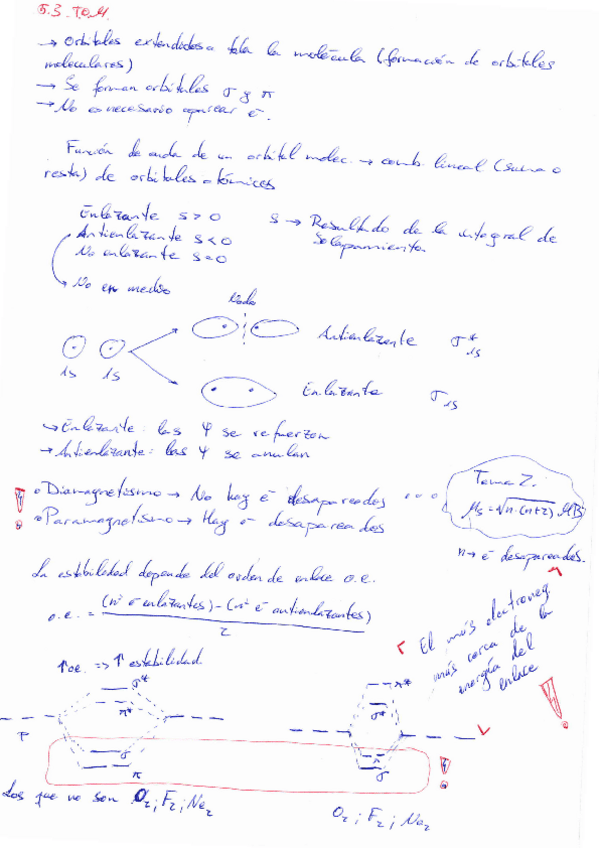 5.3. T.O.M.
→ Orbitales extendidos a toda la molécula (formación de orbitales
moleculares)
→ Se forman orbitales σ y π
→ No es necesario aparear é.
Función de onda de un orbital molec. → comb. lineal (suma o
resta) de orbitales atómicos
Enlazante s > 0
Antienlazante s < 0
No enlazante s = 0
s → Resultado de la integral de
solapamiento
No en medio
Nodo
Antienlazante σ*1s
1s 1s
Enlazante σ1s
→ Enlazante: las Ψ se refuerzan
→ Antienlazante: las Ψ se anulan
Diamagnetismo → No hay é desapareados
Paramagnetismo → Hay é desapareados
Tema 2:
μs = √n·(n+2) MB
n → é desapareados.
La estabilidad depende del orden de enlace o.e.
o.e. = (nº é enlazantes) - (nº é antienlazantes)
2
↑o.e. => ↑ estabilidad.
El más electroneg.
más cerca de la
energía del
enlace
σ*
π*
P
σ
π
π*
σ*
π
σ
Los que no son O2; F2; Ne2
O2; F2; Ne2